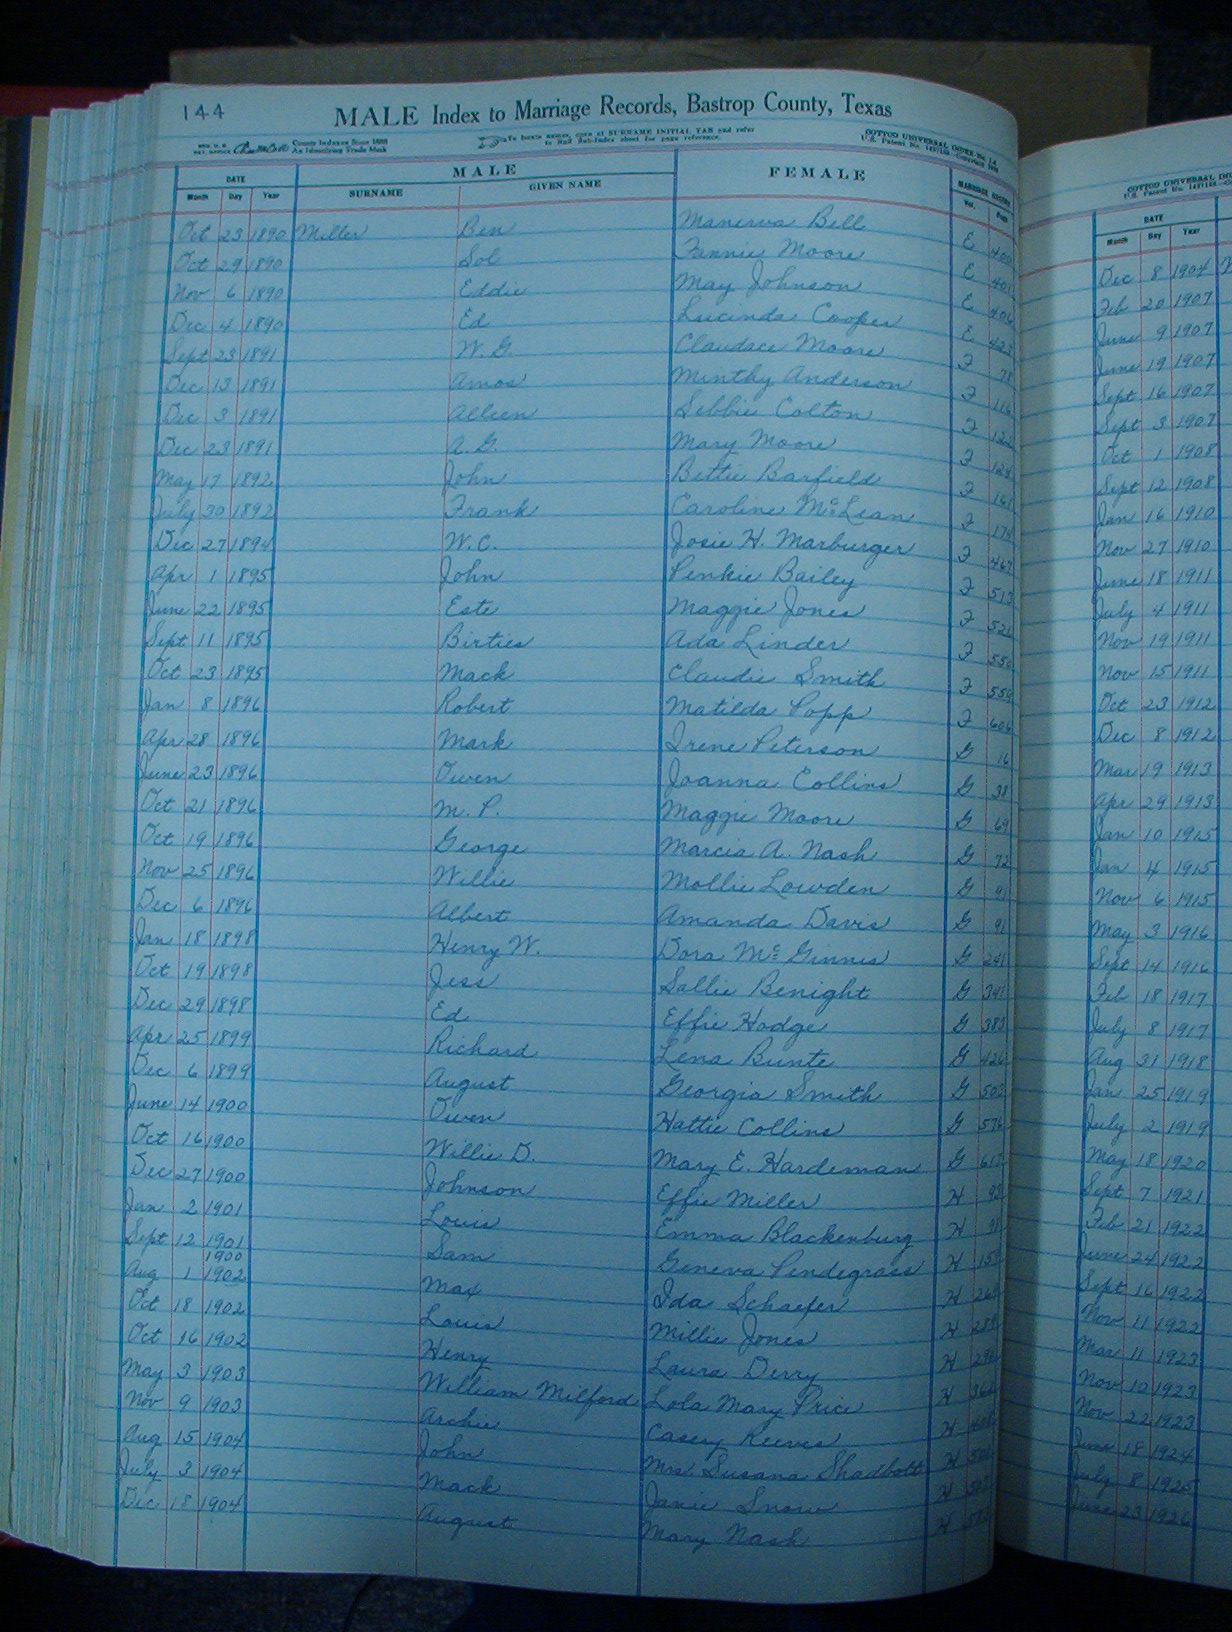 144
MALE Index to Marriage Records, Bastrop County, Texas
County Indexes Since 1888
An Identifying Trade Mark
To locate names, open at SURNAME INITIAL TAB and refer
to Rail Sub-Index sheet for page reference.
COTTCO UNIVERSAL INDEX
U.S. Patent No.
DATE MALE FEMALE MARRIAGE RECORD
Month Day Year SURNAME GIVEN NAME Vol. Page
Oct 23 1890 Miller Ben Manerva Bell E 400
Oct 29 1890 Sol Fannie Moore E 401
Nov 6 1890 Eddie May Johnson E 406
Dec 4 1890 Ed Lucinda Cooper E 428
Sept 23 1891 W. G. Claudace Moore F 78
Dec 13 1891 Amos Minthy Anderson F 116
Dec 3 1891 Alleen Sebbie Colton F 122
Dec 23 1891 A. G. Mary Moore F 128
May 17 1892 John Bettie Barfield F 161
July 30 1892 Frank Caroline McLean F 174
Dec 27 1894 W. C. Josie H. Marburger F 467
Apr 1 1895 John Penkie Bailey F 513
June 22 1895 Este Maggie Jones F 526
Sept 11 1895 Birties Ada Linder F 550
Oct 23 1895 Mack Claudie Smith F 550
Jan 8 1896 Robert Matilda Popp F 606
Apr 28 1896 Mark Irene Peterson G 16
June 23 1896 Owen Joanna Collins G 38
Oct 21 1896 M. P. Maggie Moore G 69
Oct 19 1896 George Marcia A. Nash G 72
Nov 25 1896 Willie Mollie Lowden G 91
Dec 6 1896 Albert Amanda Davis G 91
Jan 18 1898 Henry W. Dora McGinnis G 241
Oct 19 1898 Jess Sallie Benight G 341
Dec 29 1898 Ed Effie Hodge G 383
Apr 25 1899 Richard Lena Bunte G 426
Dec 6 1899 August Georgia Smith G 503
June 14 1900 Owen Hattie Collins G 576
Oct 16 1900 Willie D. Mary E. Hardeman G 617
Dec 27 1900 Johnson Effie Miller H 93
Jan 2 1901 Louis Emma Blackenburg H 98
Sept 12 1901 Sam Geneva Pendegrass H 159
1900
Aug 1 1902 Max Ida Schaefer H
Oct 18 1902 Louis Millie Jones H 288
Oct 16 1902 Henry Laura Derry H 296
May 3 1903 William Milford Lola Mary Price H
Nov 9 1903 Archie Casey Reeves H 408
Aug 15 1904 John Mrs. Susana Shadbolt H
July 3 1904 Mack Janie Snow H
Dec 18 1904 August Mary Nash H
COTTCO UNIVERSAL
U.S. Patent No.
DATE
Month Day Year
Dec 8 1904
Feb 20 1907
June 9 1907
June 19 1907
Sept 16 1907
Sept 3 1907
Oct 1 1908
Sept 12 1908
Jan 16 1910
Nov 27 1910
June 18 1911
July 4 1911
Nov 19 1911
Nov 15 1911
Oct 23 1912
Dec 8 1912
Mar 19 1913
Apr 29 1913
Jan 10 1915
Jan 4 1915
Nov 6 1915
May 3 1916
Sept 14 1916
Feb 18 1917
July 8 1917
Aug 31 1918
Jan 25 1919
July 2 1919
May 18 1920
Sept 7 1921
Feb 21 1922
June 24 1922
Sept 16 1922
Nov 11 1922
Mar 11 1923
Nov 10 1923
Nov 22 1923
June 18 1924
July 8 1925
June 23 1926